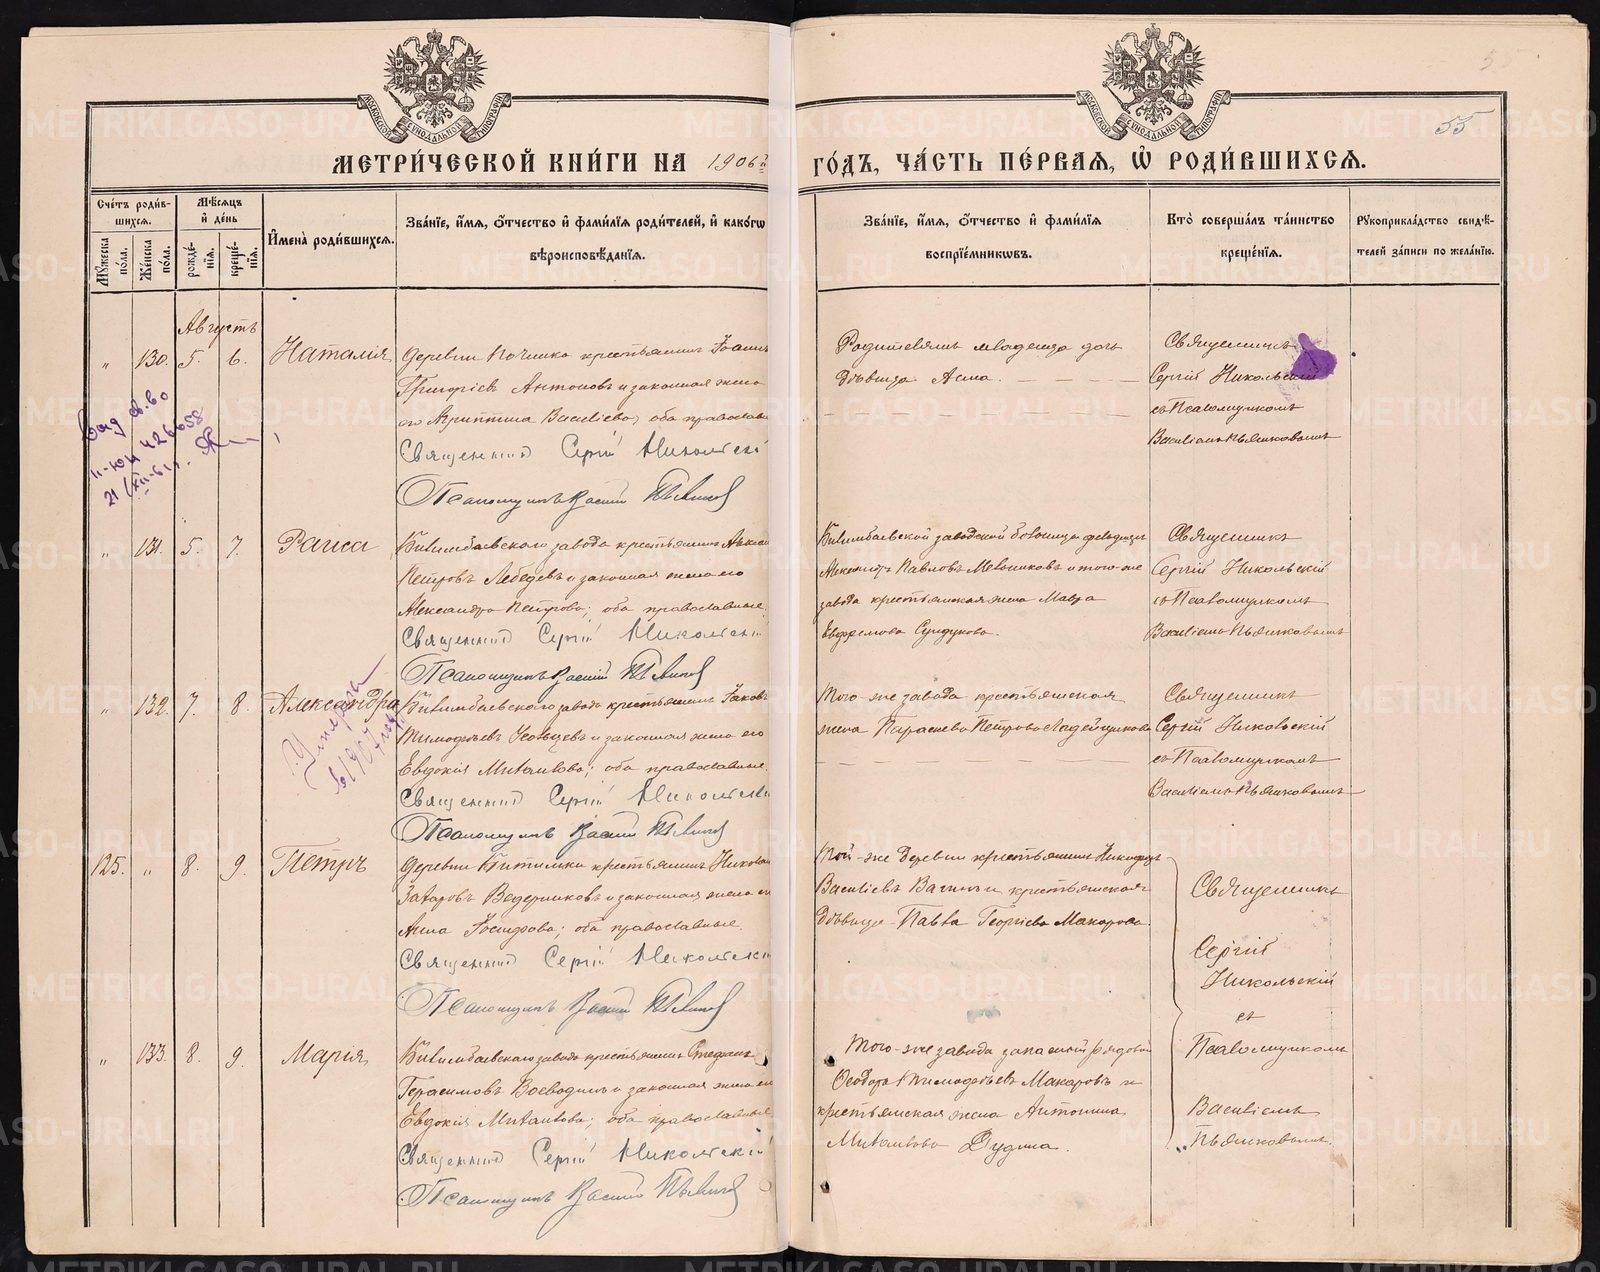 55
МЕТРИ́ЧЕСКОЙ КНИ́ГИ НА 1906й ГО́ДЪ, ЧА́СТЬ ПЕ́РВАꙖ, Ѡ҆ РОДИ́ВШИХСѦ.
МОСКОВСКОЙ СѴНОДАЛЬНОЙ ТИПОГРАФІИ
МОСКОВСКОЙ СѴНОДАЛЬНОЙ ТИПОГРАФІИ
Сче́тъ роди́в-
шихсѧ.
Мꙋ́жеска по́ла.
Же́нска по́ла.
Мѣ́сѧцъ
и҆ де́нь
рожде́-
нїѧ.
креще́-
нїѧ.
И҆мена̀ роди́вшихсѧ.
Зва́нїе, и҆́мѧ, ѻ҆́тчество и҆ фами́лїѧ роди́телей, и҆ како́гѡ
вѣроисповѣ́данїѧ.
Зва́нїе, и҆́мѧ, ѻ҆́тчество и҆ фами́лїѧ
воспрїе́мникѡвъ.
Кто̀ соверша́лъ та́инство
креще́нїѧ.
Рꙋкоприкла́дство свидѣ́-
телей за́писи по жела́нїю.
Августъ
" 130. 5. 6. Наталія
деревни Починка крестьянинъ Іоаннъ
Григоріевъ Антоновъ и законная жена
его Агриппина Васильева; оба православн
Священникъ Сергій Никольскій
Псаломщикъ Василій Пьянковъ
Родителямъ младенца дочь
дѣвица Анна.
Священникъ
Сергій Никольскій
съ Псаломщикомъ
Василіемъ Пьянковымъ
21/XII-61г.
" 131. 5. 7. Раиса
Билимбаевскаго завода крестьянинъ
Петровъ Лебедевъ и законная жена его
Александра Петрова; оба православные.
Священникъ Сергій Никольскій
Псаломщикъ Василій Пьянковъ
Билимбаевской заводской больницы фельдшеръ
Александръ Павловъ Мельниковъ и того-же
завода крестьянская жена Мавра
Евфремова Сундукова.
Священникъ
Сергій Никольскій
съ Псаломщикомъ
Василіемъ Пьянковымъ
" 132. 7. 8. Александра
Умерла
въ 1907 году
Билимбаевскаго завода крестьянинъ Іаковъ
Тимофеевъ и законная жена его
Евдокія Михаилова; оба православные.
Священникъ Сергій Никольскій
Псаломщикъ Василій Пьянковъ
Того-же завода крестьянская
жена Параскева Петрова Ладейщикова
Священникъ
Сергій Никольскій
съ Псаломщикомъ
Василіемъ Пьянковымъ
125. " 8. 9. Петръ
деревни Битимки крестьянинъ Николай
Захаровъ Ведерниковъ и законная жена его
Анна Іосифова; оба православные.
Священникъ Сергій Никольскій
Псаломщикъ Василій Пьянковъ
Той-же деревни крестьянинъ Никифоръ
Васильевъ Вагинъ и крестьянская
дѣвица Павла Георгіева Макарова.
Священникъ
Сергій
Никольскій
съ
Псаломщикомъ
Василіемъ
Пьянковымъ.
" 133. 8. 9. Марія
Билимбаевскаго завода крестьянинъ Стефанъ
Герасимовъ Воеводинъ и законная жена его
Евдокія Михаилова; оба православные
Священникъ Сергій Никольскій
Псаломщикъ Василій Пьянковъ
Того-же завода запасной рядовой
Феодоръ Тимофеевъ Макаровъ и
крестьянская жена Антонина
Михаилова Дудина.
METRIKI.GASO-URAL.RU